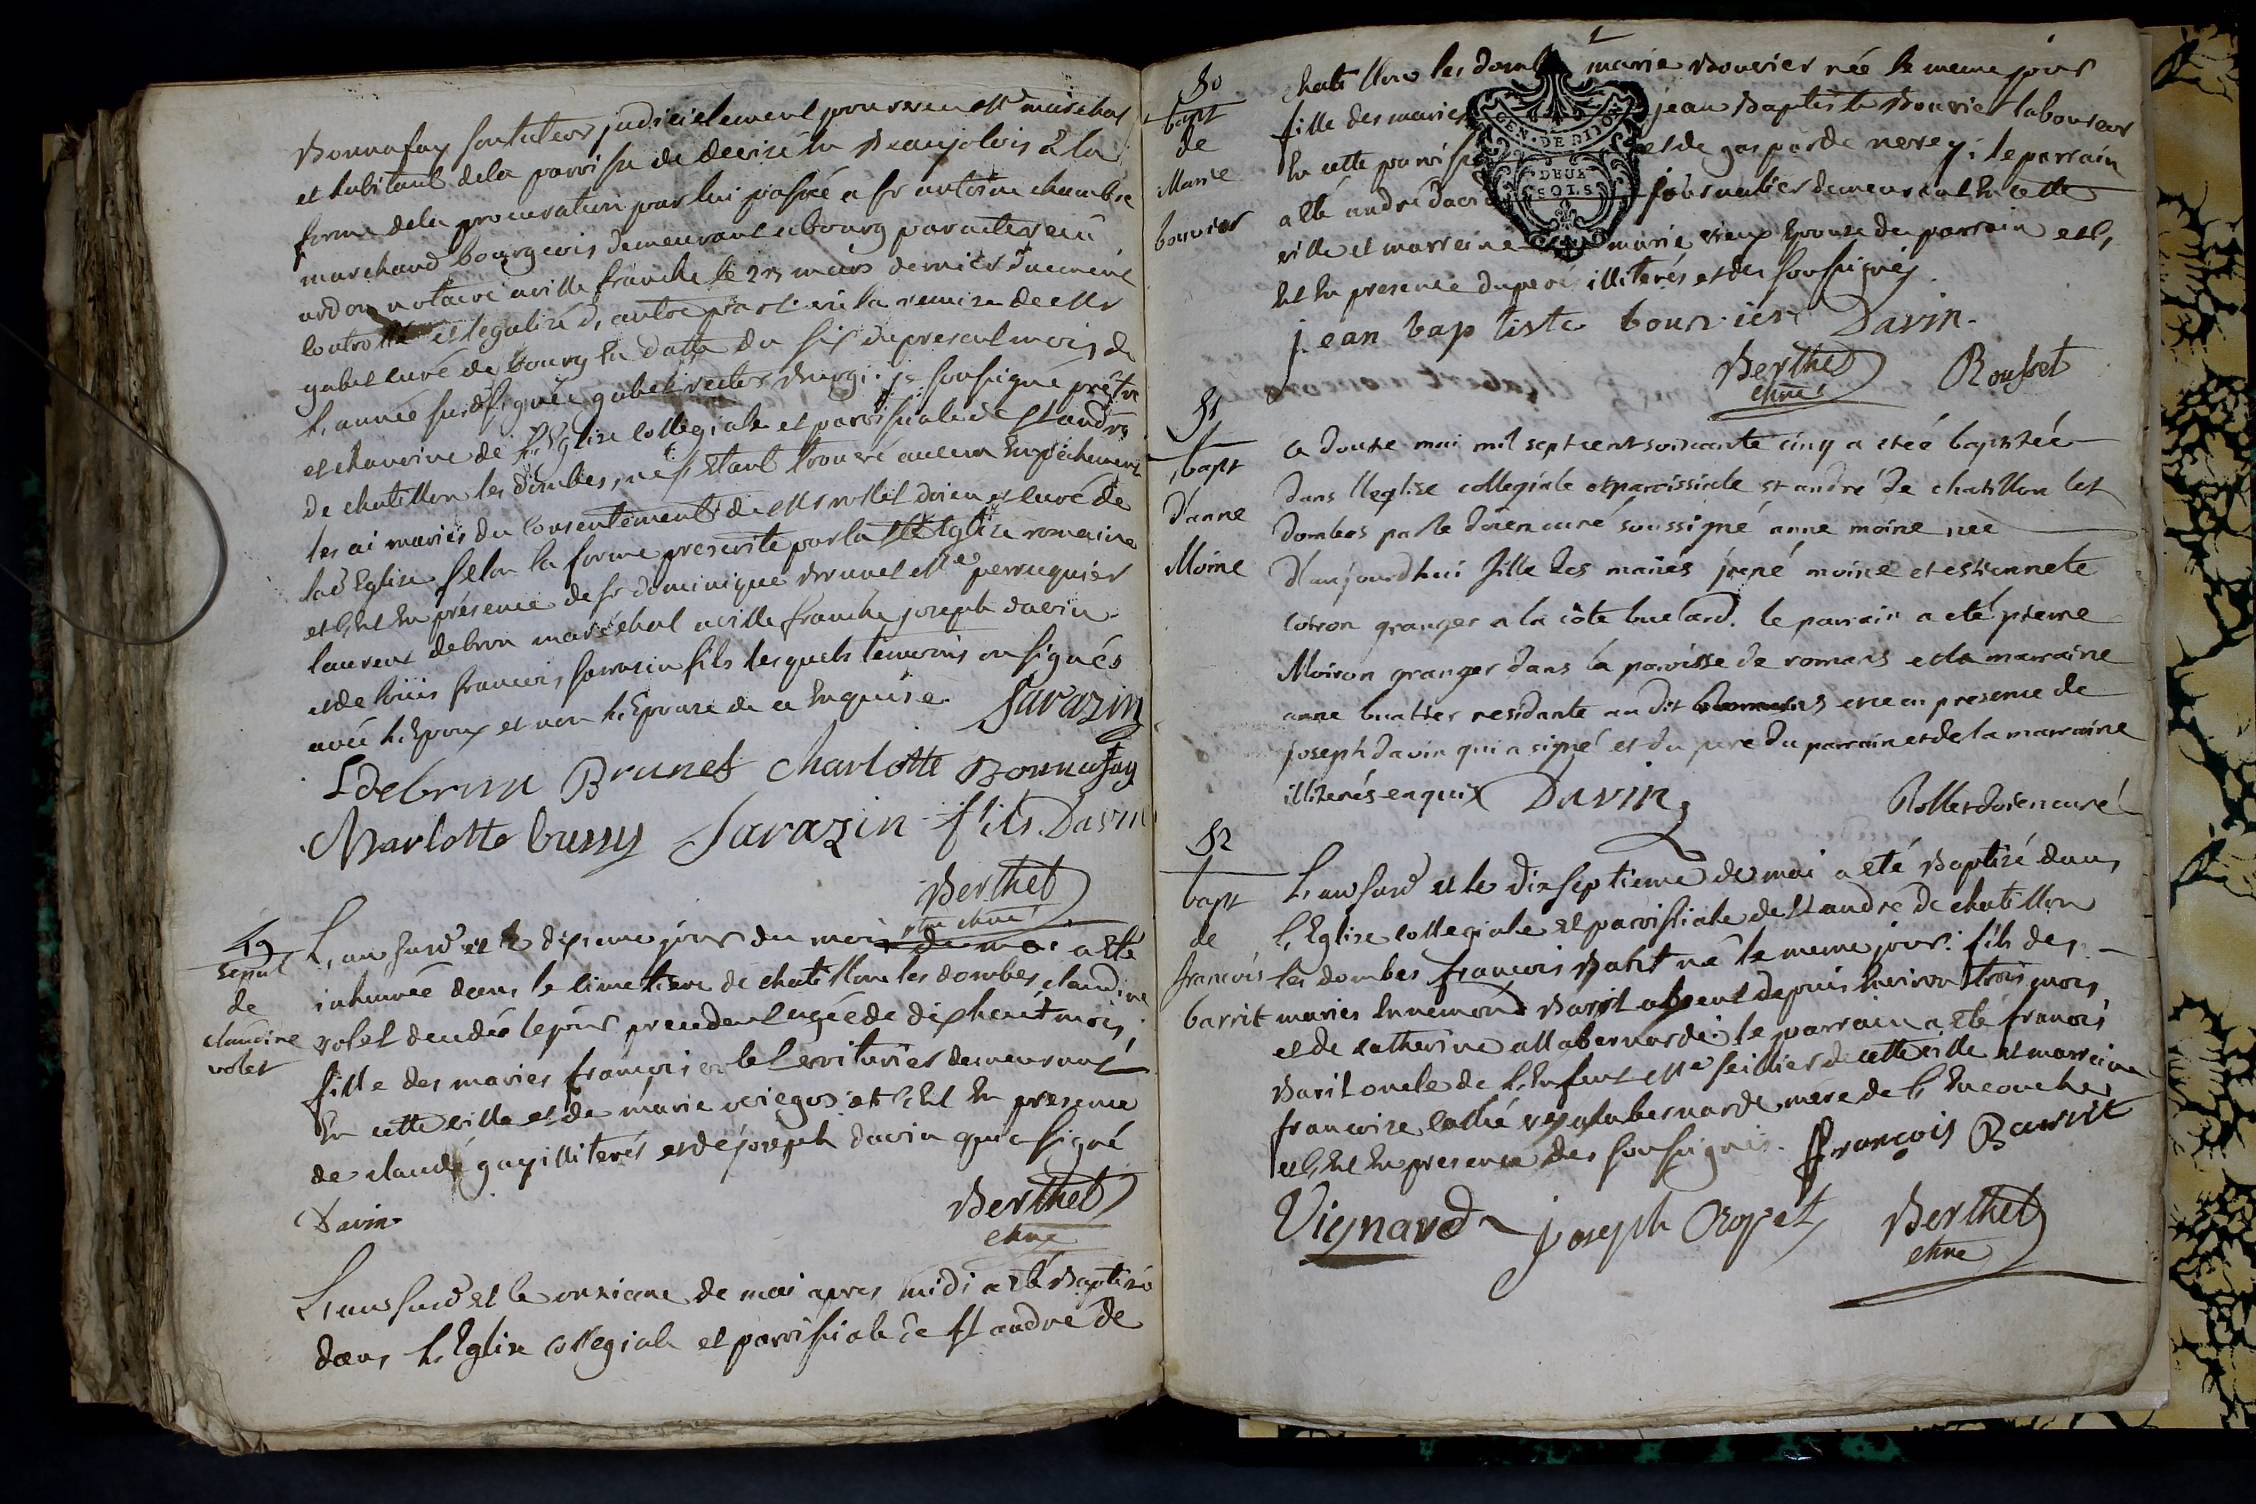 Bonnafay son tuteur judicielement pourvu et me marechal
et habitant de la paroisse de denicé en Beaujolois à la
forme de la procuration par lui passée a sr antoine chambre
marchand bourgeois demeurant a bourg par acte receu
ardon notaire a ville franche le 25 mars dernier duement
controllé et legalisé d'autre part vu la remise de Mr
gabet curé de bourg en datte du six du present mois de
l'année susd signée gabet rector Burgi. je soussigné prêtre
et chanoine de l'Eglise collegiale et paroissiale de St andré
de chatillon les dombes, ne s'etant trouvé aucun empêchement
les ai mariés du consentement de Mr rollet doien et curé de
lad Eglise selon la forme prescrite par la ste Eglise romaine
et c'est en présence de sr dominique Brunet me perruquier
laurent debrun maréchal a ville franche joseph davin
et de loüis francois sarrasin fils lesquels temoins on signés
avec l'Epoux et non l'Epouse de ce enquise. Sarazin
L debrun Brunet Charlotte Bonnafay
Charlotte bussy Sarazin fils Davin
Berthet
ptre chne
49
sepul
de
claudine
volet
L'an susd et le dixieme jour du mois de mai a eté
inhumée dans le cimetiere de chatillon les dombes claudine
volet decedée le jour precedent agée de dix huit mois,
fille des maries françois volet voiturier demeurant
en cette ville et de marie et c'est en presence
de claude gay illiterés et de joseph davin qui a signé
Davin
Berthet
chne
L'an susd et le onzieme de mai apres midi a eté Baptisée
dans l'Eglise collegiale et paroissiale de St andré de
50
bapt
de
Marie
bouvier
chatillon les dombes marie Bouvier née le meme jour
fille des maries jean Baptiste Bouvier laboureur
en cette paroisse et de gasparde nerey: le parrain
a eté andré davin journalier demeurant en cette
ville et marreine marie vieux Epouse du parrain et c,
est en presence du pere illiterés et des soussignés.
GEN. DE DIJON
DEUX
SOLS
jean baptiste bouvier Davin
Berthet
chne
Rousset
51
bapt
d'anne
Moine
a douze mai mil sept cent soixante cinq a eteé baptisée
dans l'leglise collegiale et paroissiale st andré de chatillon les
dombes par le doien curé soussigné anne moine née
d'aujourdhui fille des mariés jrené moine et estiennete
coiron granger a la côte buelard. le parrain a eté pierre
Moiron granger dans la paroisse de romans et la marraine
anne buatier residante au dit Romans et ce en presence de
joseph davin qui a signé et du pere du parrain et de la marraine
illiterés enquis Davin
Rollet doien curé
52
bapt
de
francois
barrit
L'an susd et le dixseptieme de mai a eté Baptisé dans
l'Eglise collegiale et paroissiale de St andré de chatillon
les dombes francois Barit né le meme jour: fils des
maries ennemond Barit absent depuis environ trois mois
et de catherine allabernarde: le parrain a eté francois
Barit oncle de l'enfant me sellier de cette ville et marreine
francoise allabernarde mere de l'encouchee
et c'est en presence des soussignés. François Barrit
Vignard joseph Cropet Berthet
chne